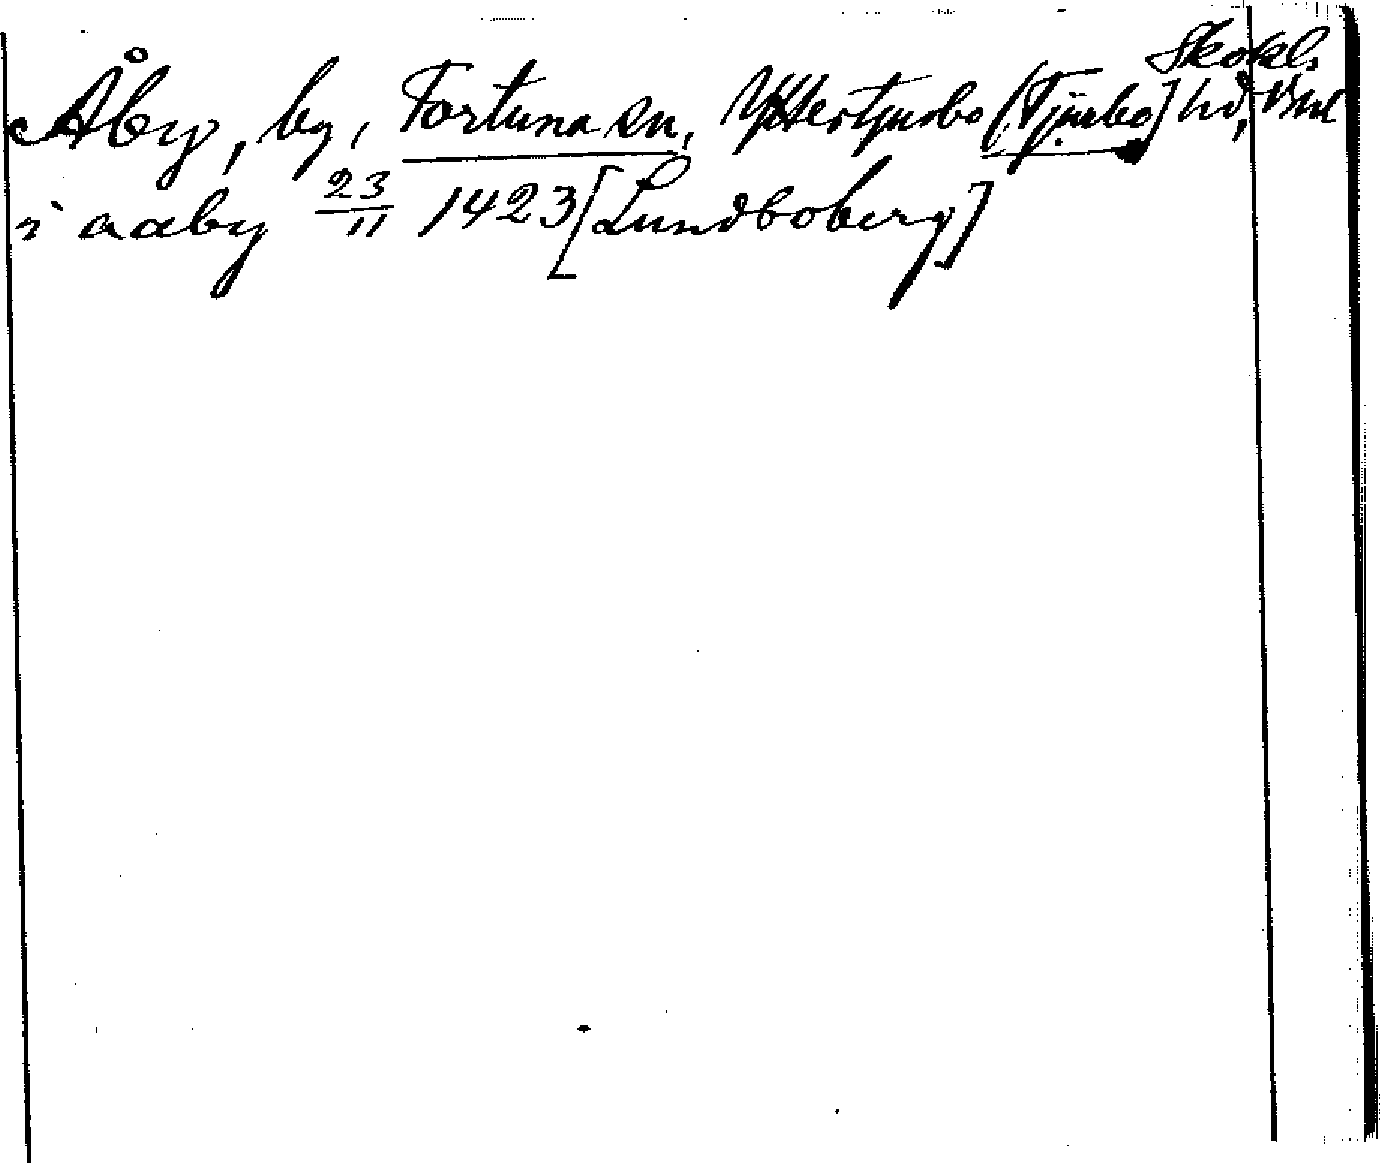 Skokl.
Åby, by, Fortuna sn, Yttertjurbo (Tjurbo] hd, Vml
i aaby 23/11 1423 [Lundboberg]